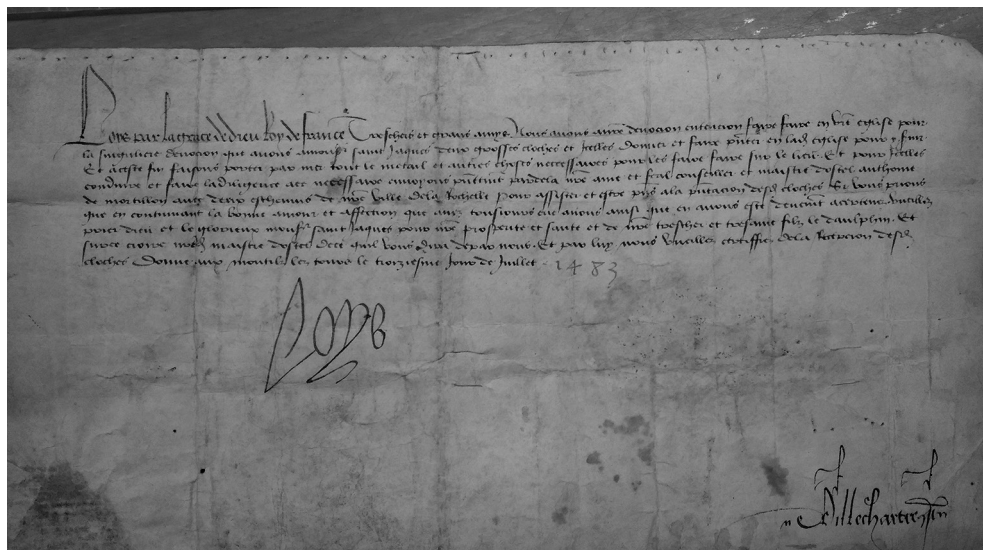 Loys par la grace de dieu Roy de france Treschers et grans amys Nous auons eu deuocion faire faire en vre eglise pour
la singuliere deuocion que auons a monsr saint Jaques deux grosses cloches et Icelles donner et faire en lad eglise pour
Et a ceste fin faisons porter par mer tout le metail et autres choses necessaires pour les faire faire sur le lieu Et pour Icelles
conduire et faire la diligence nre ame et feal conseiller et maistre dostel anthoine
de mortillon auec deux escheuins de nre ville de la Rochelle pour assister et estre a la desd cloches Et vous prions
que en continuant la bonne amour et affection que auez tousiours eue a nous ainsi que en auons este vueillez
prier dieu et le glorieux monsr saint Jaques pour nre prosperite et sante et de nre trescher et tresame filz le daulphin Et
surce croire nred maistre dostel de ce quil vous dira de par nous Et par luy nous vueillez certiffier de la Recepcion desd
cloches Donne aux montilz les tours le troiziesme Jour de Juillet 1483
Loys
Villechartre